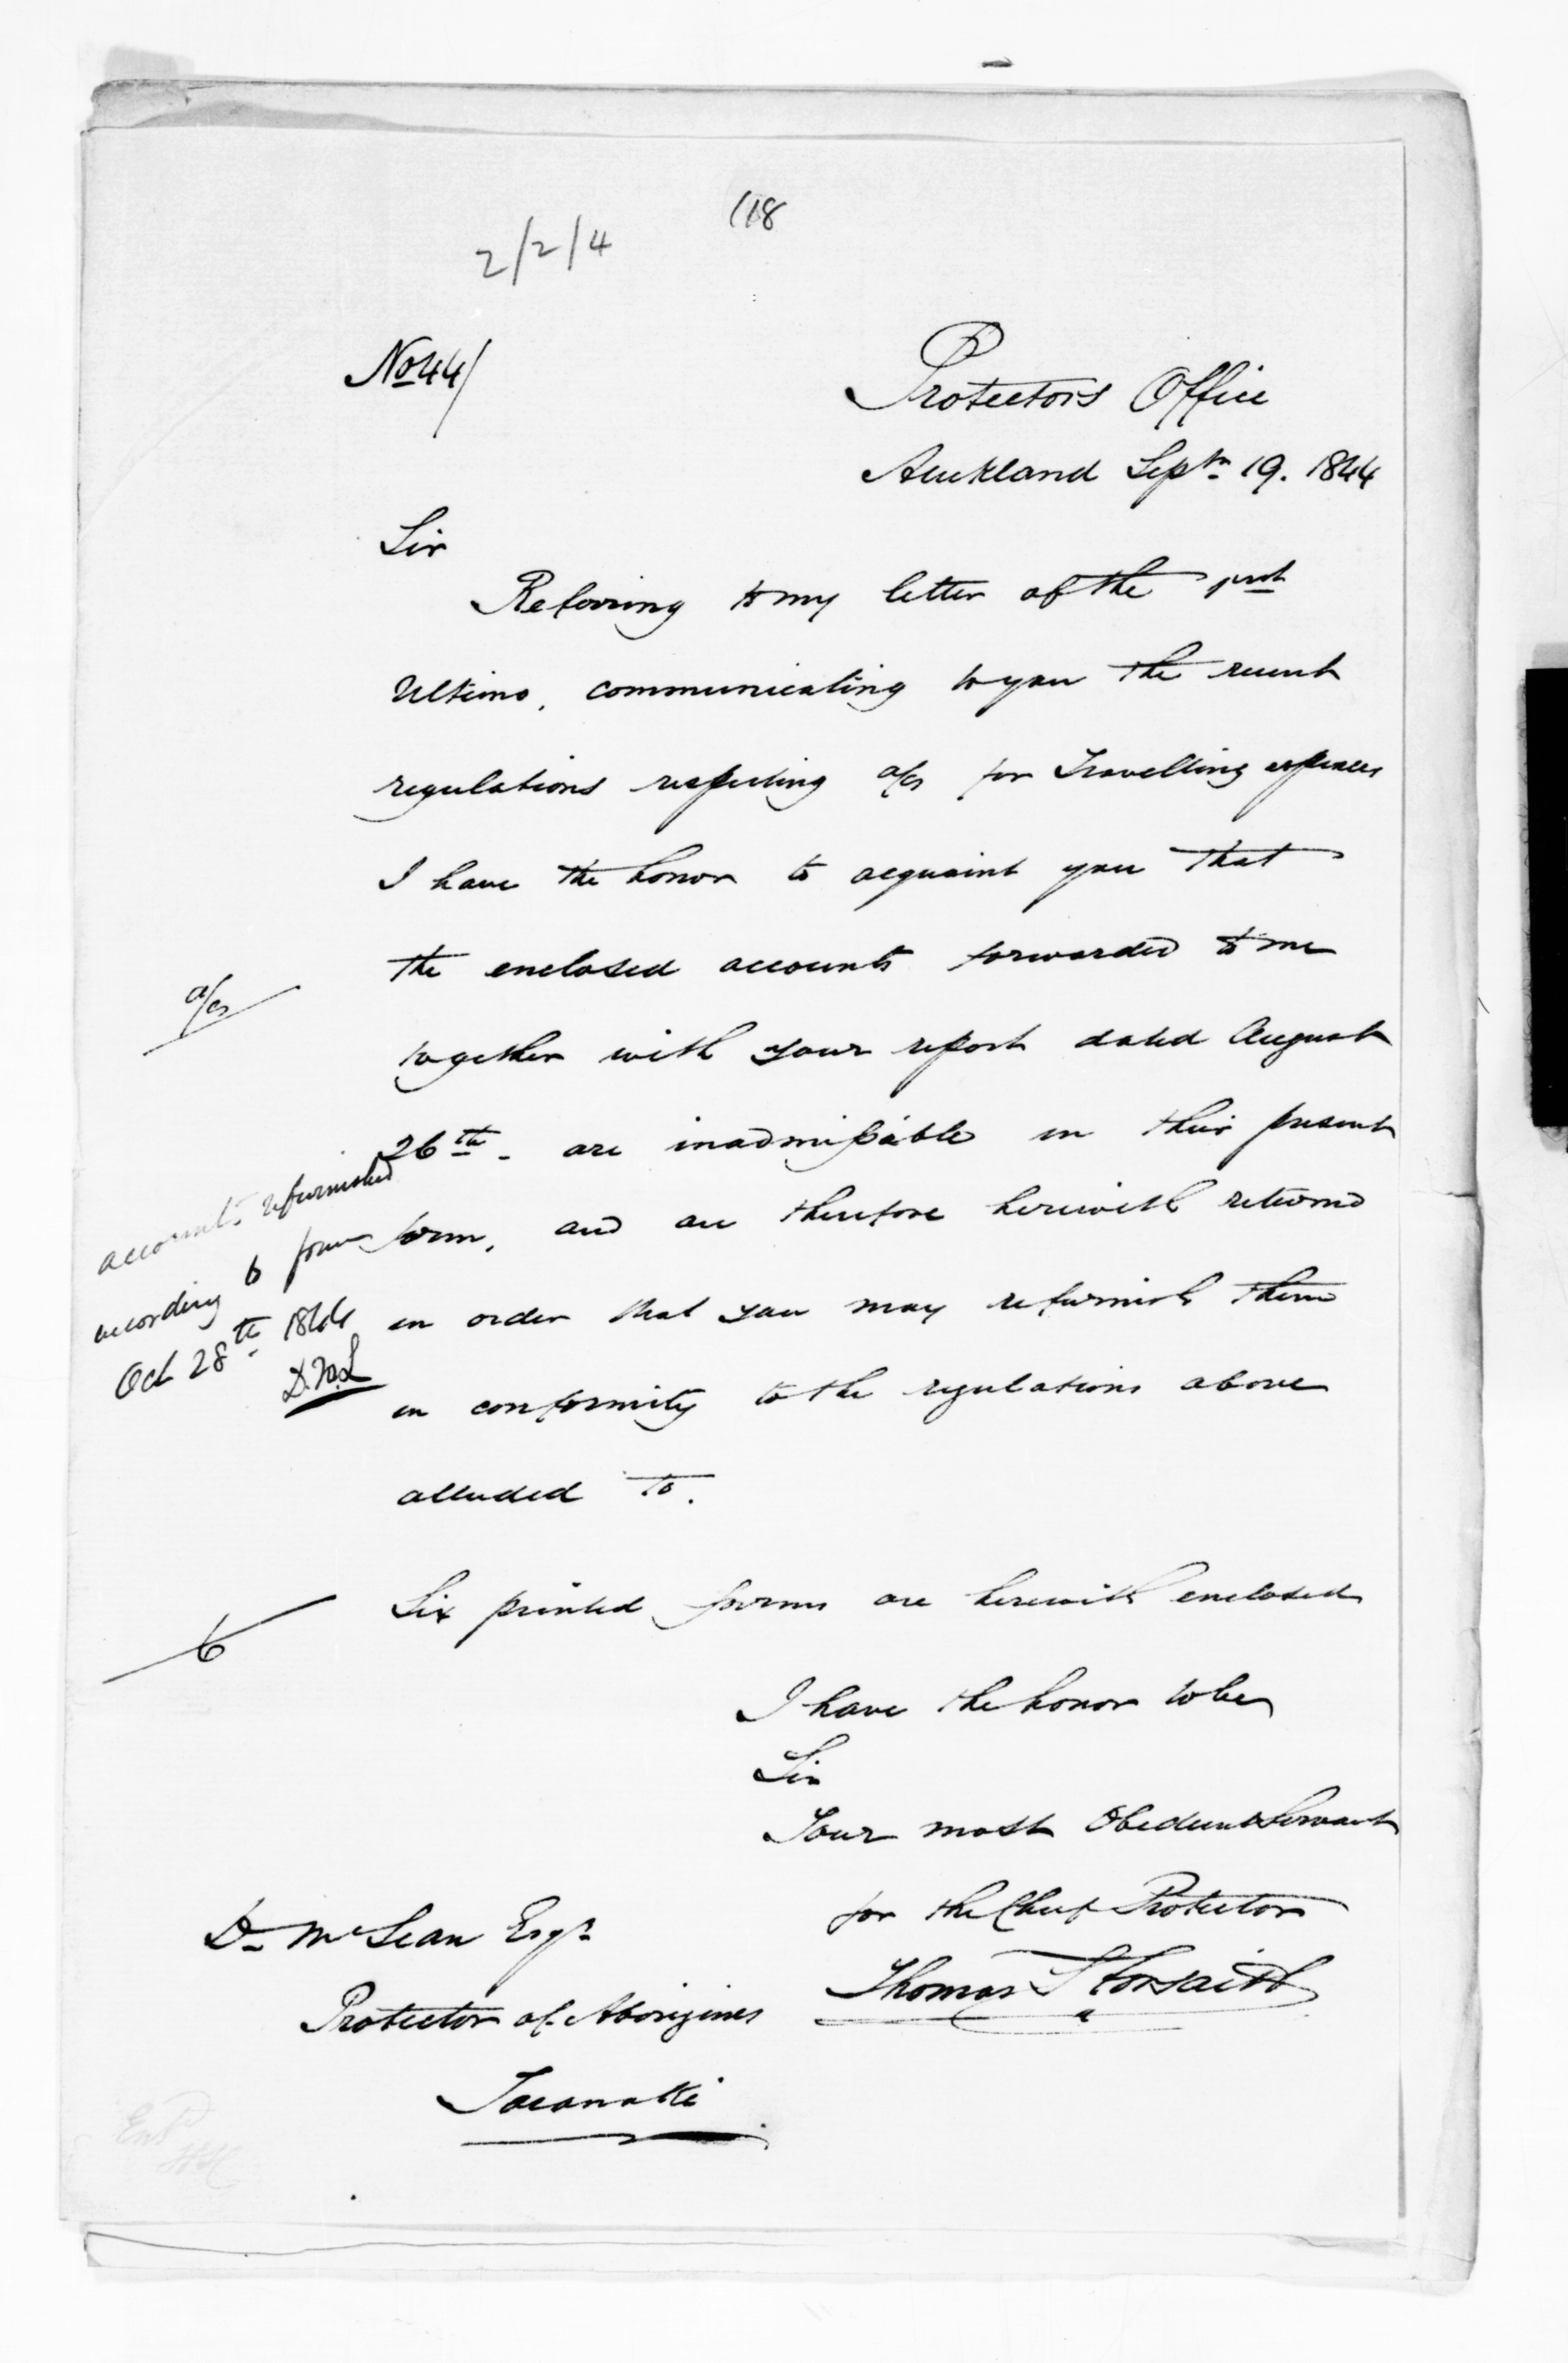 118
2/2/4
No 44/
Protectors Office
Auckland Septr 19. 1844
Sir
Referring to my letter of the
Ultimo, communicating to you the recent
regulations respecting a/cs for Travelling expences
I have the honor to acquaint you that
a/cs
the enclosed accounts forwarded to me
together with your report dated August
26th - are inadmissable in their present
form, and are therefore herewith returned
in order that you may refurnish them
in conformity to the regulations above
alluded to.
accounts refurnished
according to form
Oct 28th 1844
D. McL
6
Six printed forms are herewith enclosed
I have the honor to be
Sir
Your most Obedient Servant
for the Chief Protector
Thomas S Forsaith
Dd McLean Esqr
Protector of Aborigines
Taranaki
Entd